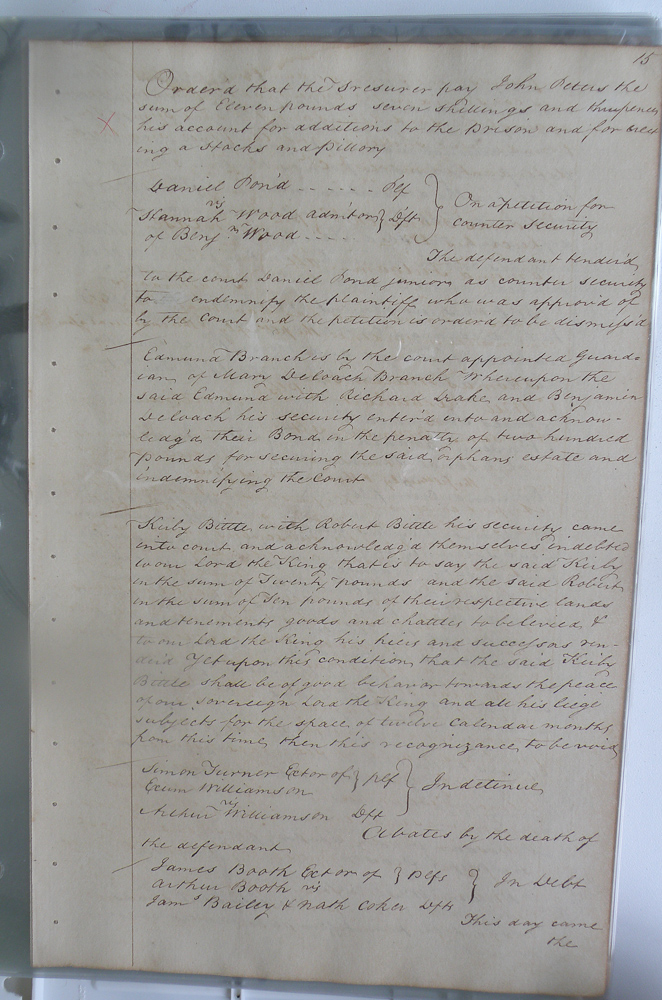 15
Orderd that the Tresurer pay John Peters the
sum of Eleven pounds seven shillings and thrupence
his account for additions to the prison and for erect
ing a stocks and pillory
Daniel Pon'd ...... Plf
vs
Hannah Wood admitorx } Dft
of Benjm Wood ....
On a petition for
counter security
The defendant tender'd
to the court Daniel Pond junior as counter security
to indemnify the plaintiff who was approv'd of
by the court and the petition is order'd to be dismiss'd
Edmund Branch is by the court appointed Guard-
ian of Mary Deloach Branch Whereupon the
said Edmund with Richard Drake and Benjamin
Deloach his security enter'd into and acknow-
ledg'd their Bond in the penalty of two hundred
pounds for securing the said orphans estate and
indemnifying the court
Kirby Bittle with Robert Bittle his security came
into court and acknowledg'd themselves indebted
to our Lord the King that is to say the said Kirby
in the sum of Twenty pounds and the said Robert
in the sum of Ten pounds of their respective lands
and tenements goods and chattles to be levied &
to our Lord the King his heirs and successors ren-
der'd Yet upon this condition that the said Kirby
Bittle shall be of good behavior towards the peace
of our sovereign Lord the King and all his liege
subjects for the space of twelve Calendar months
from this time then this recognizance to be void
Simon Turner Extor of } Plf
Exum Williamson
vs
Arthur Williamson Dft
In detinue
Abates by the death of
the defendant
James Booth Extor of } Plfs
Arthur Booth vs
Jams Bailey & Nath Coker Dfts
In Debt
This day came
the